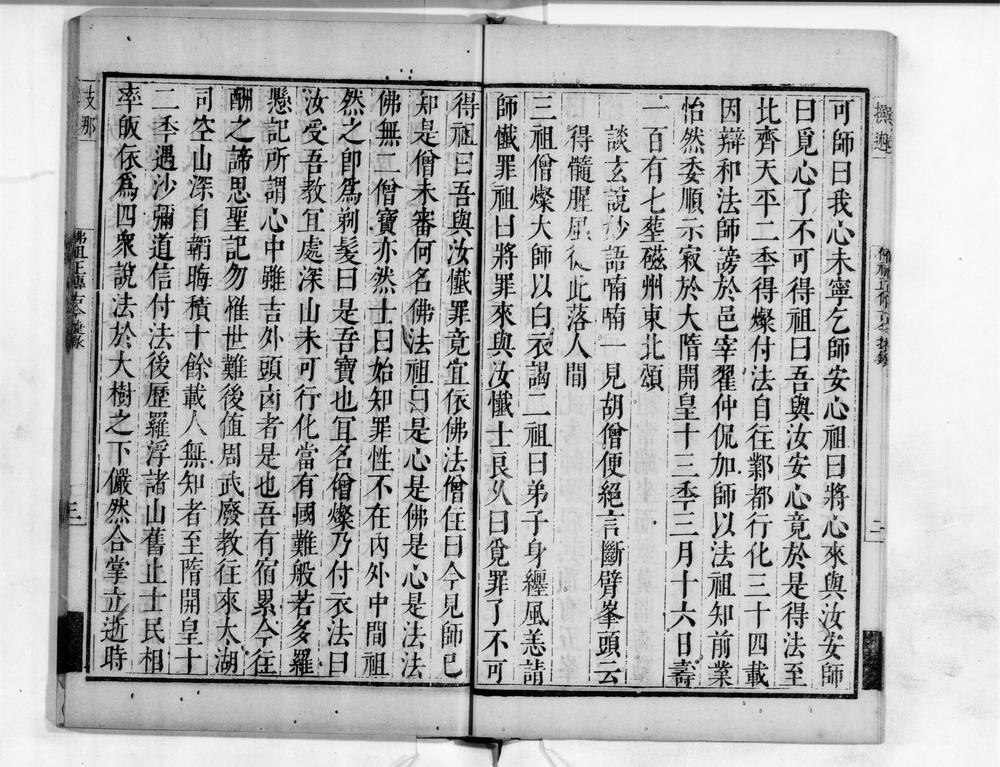 可師曰我心未寧乞師安心祖曰將心來與汝安師
曰覓心了不可得祖曰吾與汝安心竟於是得法至
北齊天平二季得燦付法自往鄴都行化三十四載
因辯和法師謗於邑宰翟仲侃加師以法祖知前業
怡然委順示寂於大隋開皇十三季三月十六日壽
一百有七塟磁州東北頌
談玄說妙語喃喃一見胡僧便絕言斷臂峯頭云
得髓腥風從此落人間
三祖僧燦大師以白衣謁二祖曰弟子身纏風恙請
師懺罪祖曰將罪來與汝懺士良乆曰覓罪了不可
得祖曰吾與汝懺罪竟宜依佛法僧住曰今見師已
知是僧未審何名佛法祖曰是心是佛是心是法法
佛無二僧寶亦然士曰始知罪性不在內外中間祖
然之卽爲剃髮曰是吾寶也宜名僧燦乃付衣法曰
汝受吾教宜處深山未可行化當有國難般若多羅
懸記所謂心中雖吉外頭凶者是也吾有宿累今往
酬之諦思聖記勿惟世難後值周武廢教往來太湖
司空山深自韜晦積十餘載人無知者至隋開皇十
二季遇沙彌道信付法後歷羅浮諸山舊止士民相
率皈依爲四衆說法於大樹之下儼然合掌立逝時
支那
撰述
佛祖正傳古今捷錄
二
三